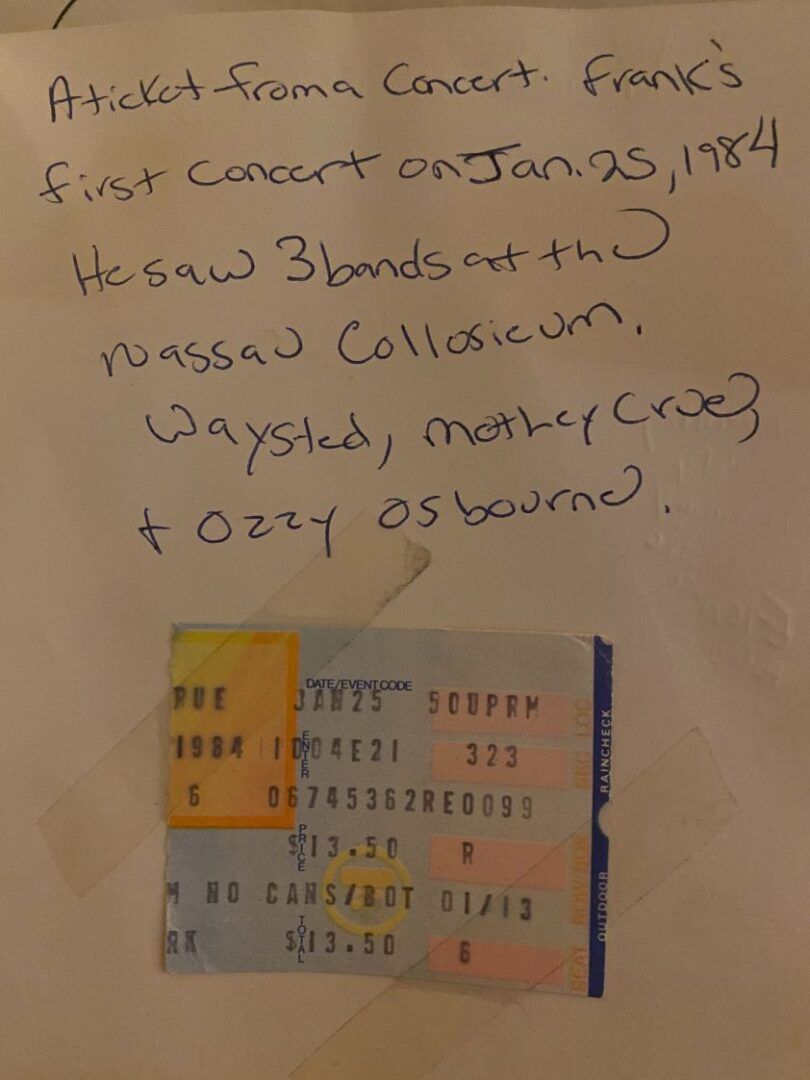 A ticket from a Concert. Frank's
first concert on Jan. 25, 1984
He saw 3 bands at the
Nassau Collosieum.
Waysted, Motley Crue,
+ Ozzy Osbourne.
DATE/EVENT CODE
RUE JAN25 50UPRM
1984 ENTER 1D04E21 323
6 06745362RE0099
PRICE $13.50 R
M NO CANS/BOT 01/13
RK TOTAL $13.50 6
SEC LOC
ROW/BOX
SEAT
RAINCHECK
OUTDOOR